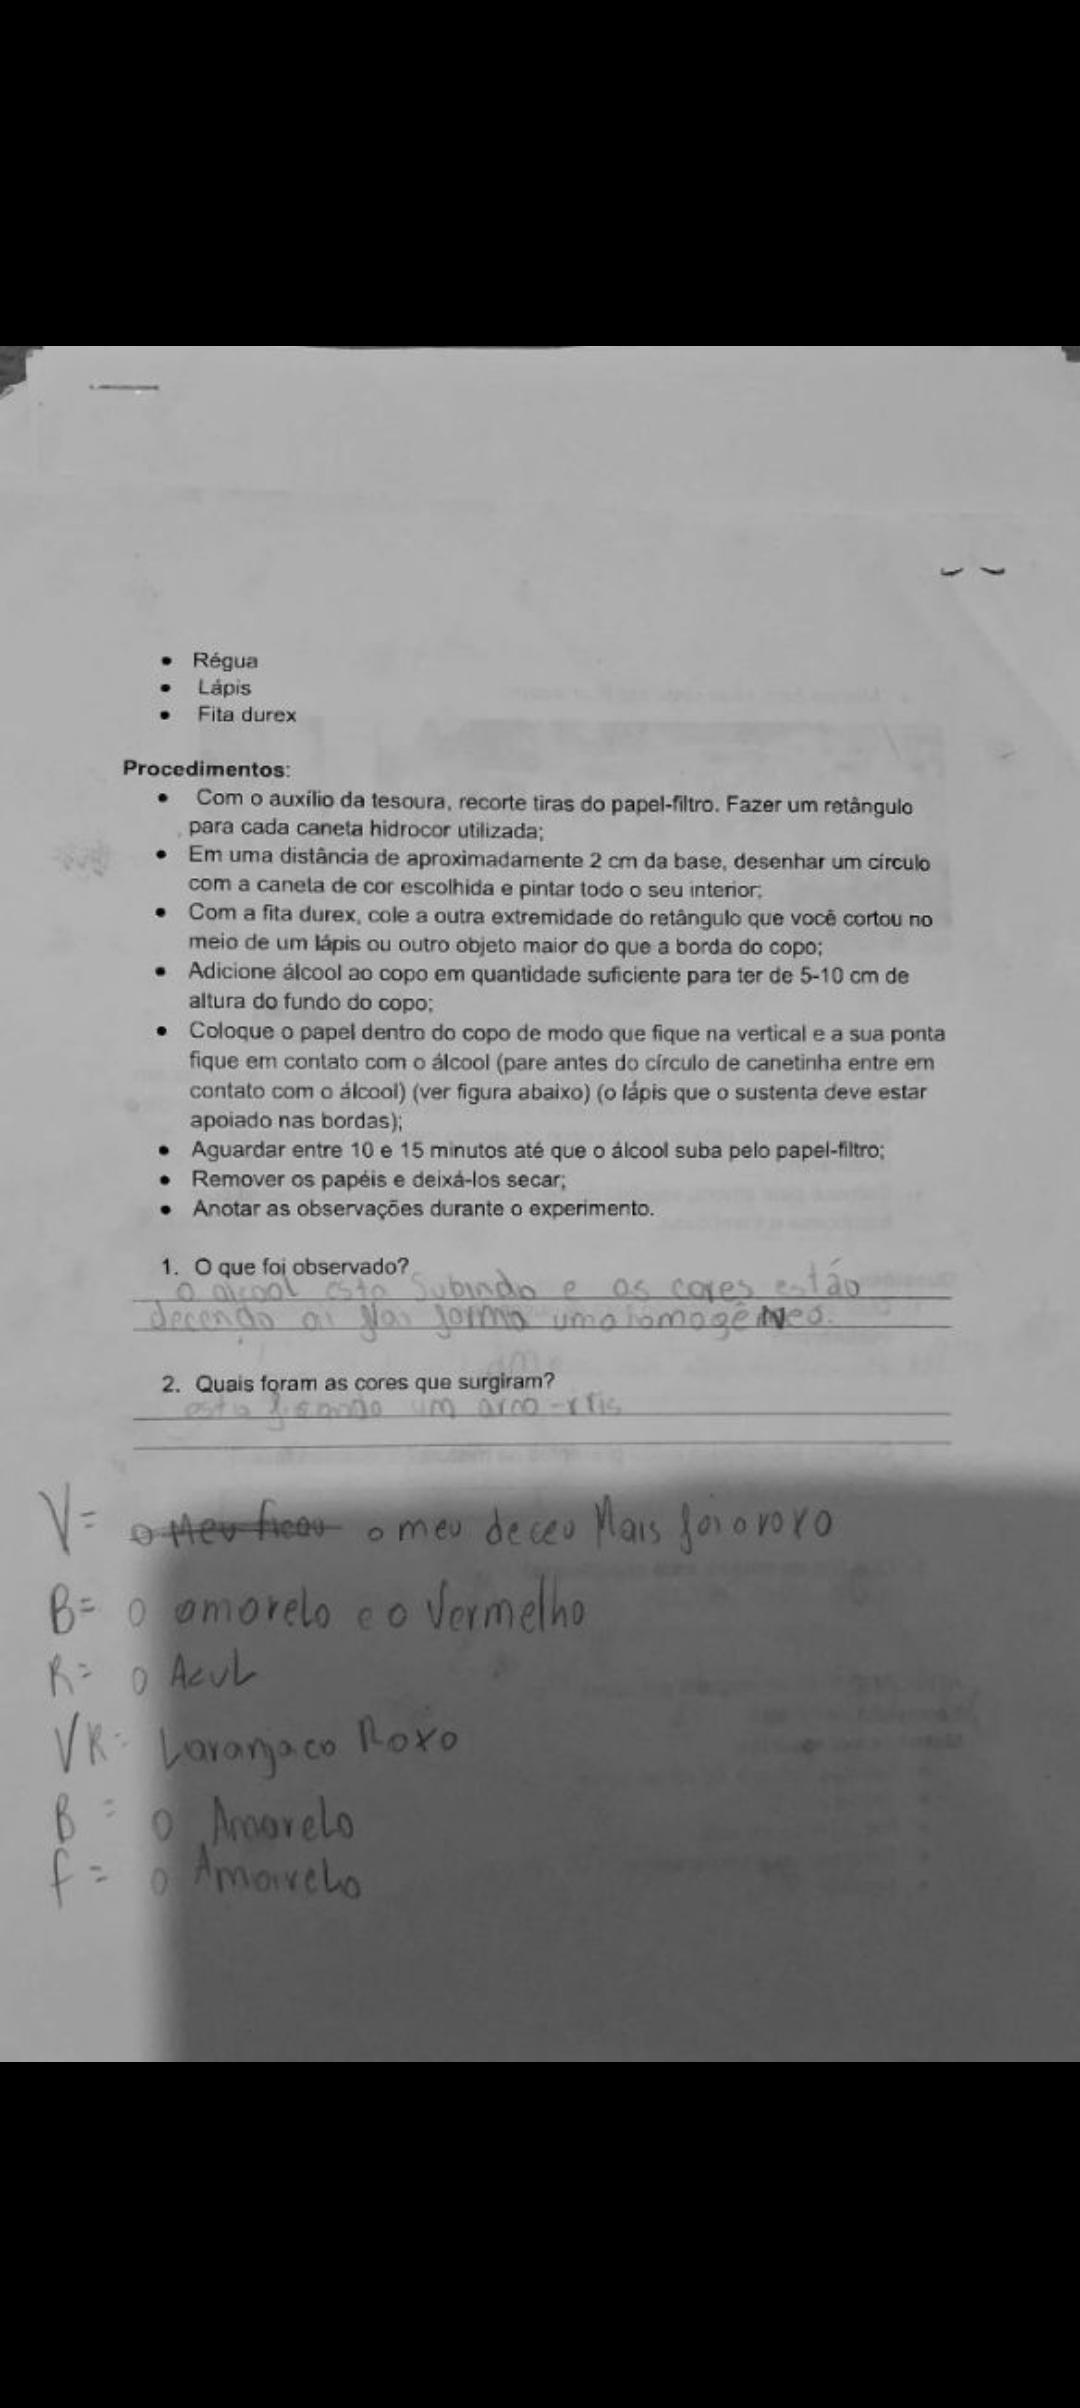 Régua
Lápis
Fita durex
Procedimentos:
Com o auxílio da tesoura, recorte tiras do papel-filtro. Fazer um retângulo
para cada caneta hidrocor utilizada;
Em uma distância de aproximadamente 2 cm da base, desenhar um círculo
com a caneta de cor escolhida e pintar todo o seu interior;
Com a fita durex, cole a outra extremidade do retângulo que você cortou no
meio de um lápis ou outro objeto maior do que a borda do copo;
Adicione álcool ao copo em quantidade suficiente para ter de 5-10 cm de
altura do fundo do copo;
Coloque o papel dentro do copo de modo que fique na vertical e a sua ponta
fique em contato com o álcool (pare antes do círculo de canetinha entre em
contato com o álcool) (ver figura abaixo) (o lápis que o sustenta deve estar
apoiado nas bordas);
Aguardar entre 10 e 15 minutos até que o álcool suba pelo papel-filtro;
Remover os papéis e deixá-los secar;
Anotar as observações durante o experimento.
1. O que foi observado?
O alcool esta Subindo e as cores estão
decendo ai forma uma homogêNea.
2. Quais foram as cores que surgiram?
esta ficando um arco-iris
V= o Meu ficou o meu deceu Mais foi o roxo
B= o amarelo e o Vermelho
R= o Azul
VR= Laranja co Roxo
B= o Amarelo
f= o Amarelo